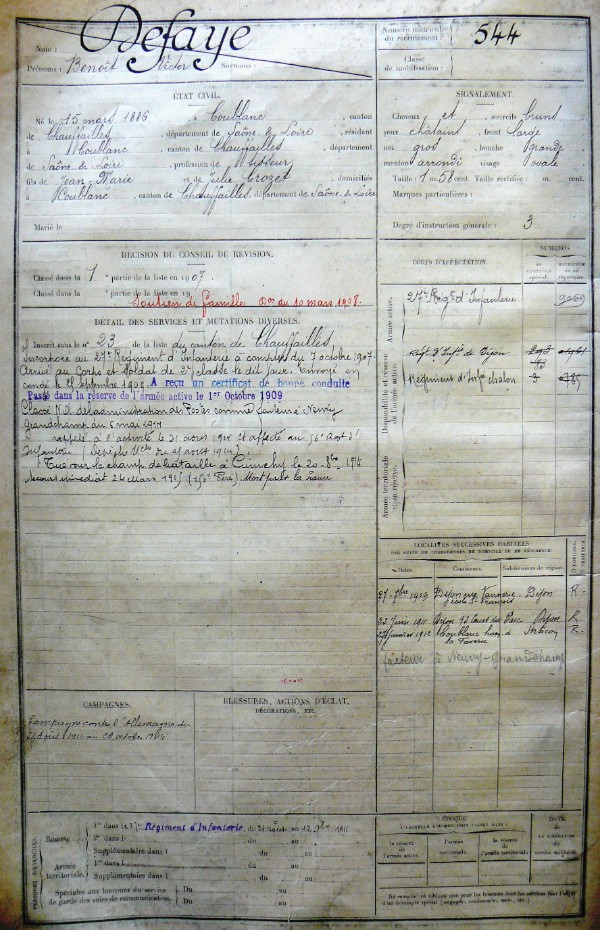 Nom : Defaye
Prénoms : Benoît Victor Surnoms :
Numéro matricule du recrutement : 544
Classe de mobilisation :
ÉTAT CIVIL.
Né le 15 mars 1886, à Coublanc, canton
de Chauffailles, département de Saône & Loire, résidant
à Coublanc, canton de Chauffailles, département
de Saône & Loire, profession de Tisseur
fils de Jean-Marie et de Julie Crozet, domiciliés
à Coublanc, canton de Chauffailles, département de Saône & Loire
Marié le
SIGNALEMENT.
Cheveux et sourcils bruns
yeux châtains, front large
nez gros, bouche grande
menton arrondi visage ovale
Taille : 1 m. 58 cent. Taille rectifiée : m. cent.
Marques particulières :
Degré d'instruction générale : 3
DÉCISION DU CONSEIL DE RÉVISION.
Classé dans la 1 partie de la liste en 1907.
Classé dans la partie de la liste en 19
Soutien de famille. Don du 10 mars 1908.
DÉTAIL DES SERVICES ET MUTATIONS DIVERSES.
Inscrit sous le n° 23 de la liste du canton de Chauffailles.
Incorporé au 27e Régiment d'Infanterie à compter du 7 octobre 1907.
Arrivé au Corps et soldat de 2e classe le dit jour. Envoyé en
congé le 25 septembre 1909. A reçu un certificat de bonne conduite
Passé dans la réserve de l'armée active le 1er Octobre 1909
Classé N.D. de l'administration des Postes comme facteur à Neuvy
Grandchamp du 5 mai 1914
rappelé à l'activité le 21 août 1914 et affecté au
Infanterie
Tué sur le champ de bataille à le 20 1914
Secours immédiat 24 mars 1915 Mort pour la France
CORPS D'AFFECTATION.
NUMÉROS
Armée active.
27e Régt d'Infanterie
Disponibilité et réserve de l'armée active.
Régt d'Infie de Dijon
Régiment d'Infie Chalon
Armée territoriale et sa réserve.
LOCALITÉS SUCCESSIVES HABITÉES
PAR SUITE DE CHANGEMENTS DE DOMICILE OU DE RÉSIDENCE.
Dates. Communes. Subdivisions de région.
27 7bre 1909 Dijon rue Vannerie Dijon R.
22 Juin 1911 Dijon 92 Cours du Parc Dijon R
27 Janvier 1912 Coublanc R.
facteur à Neuvy-Grandchamp
CAMPAGNES.
Campagne contre l'Allemagne du
21 août 1914 au 20 octobre 1914
BLESSURES, ACTIONS D'ÉCLAT,
DÉCORATIONS, ETC.
PÉRIODES D'EXERCICES.
Réserve
1re dans le 27e Régiment d'Infanterie, du 21 août au 12 7bre 1911
2e dans l du au
Supplémentaire dans l du au
Armée territoriale.
1re dans l du au
Supplémentaire dans l du au
Spéciales aux hommes du service
de garde des voies de communication.
Du au
Du au
ÉPOQUE
À LAQUELLE L'HOMME DOIT PASSER DANS :
la réserve de l'armée active.
l'armée territoriale.
la réserve de l'armée territoriale.
DATE
DE LA LIBÉRATION
du service militaire.